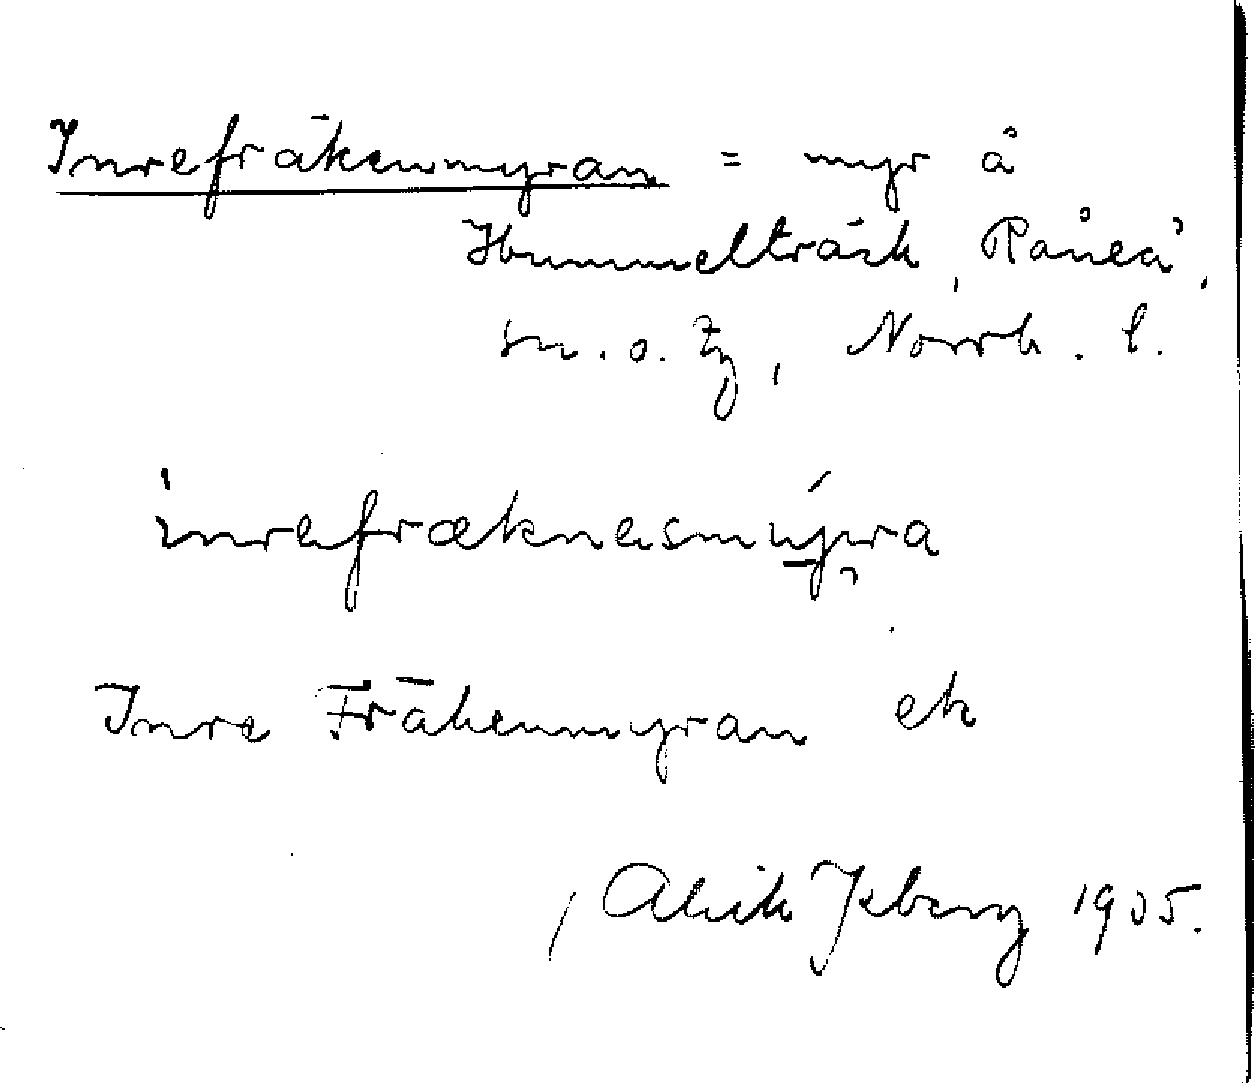 Inrefräkenmyran = myr å
Hummelträsk, Råneå,
sn. o. tg, Norrb. l.
inrefræknesmyra
Inre Fräkenmyran ek
Alrik Isberg 1905.